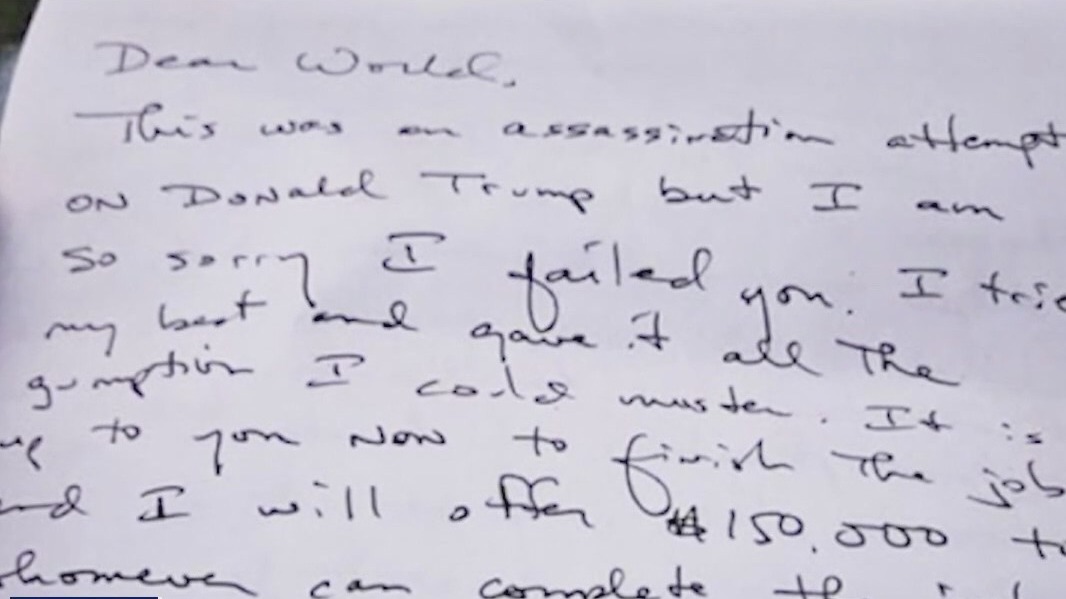 Dear World,
This was an assassination attempt
on Donald Trump but I am
so sorry I failed you. I trie
my best and gave it all the
gumption I could muster. It is
up to you now to finish the job
and I will offer $150,000 to
whomever can complete